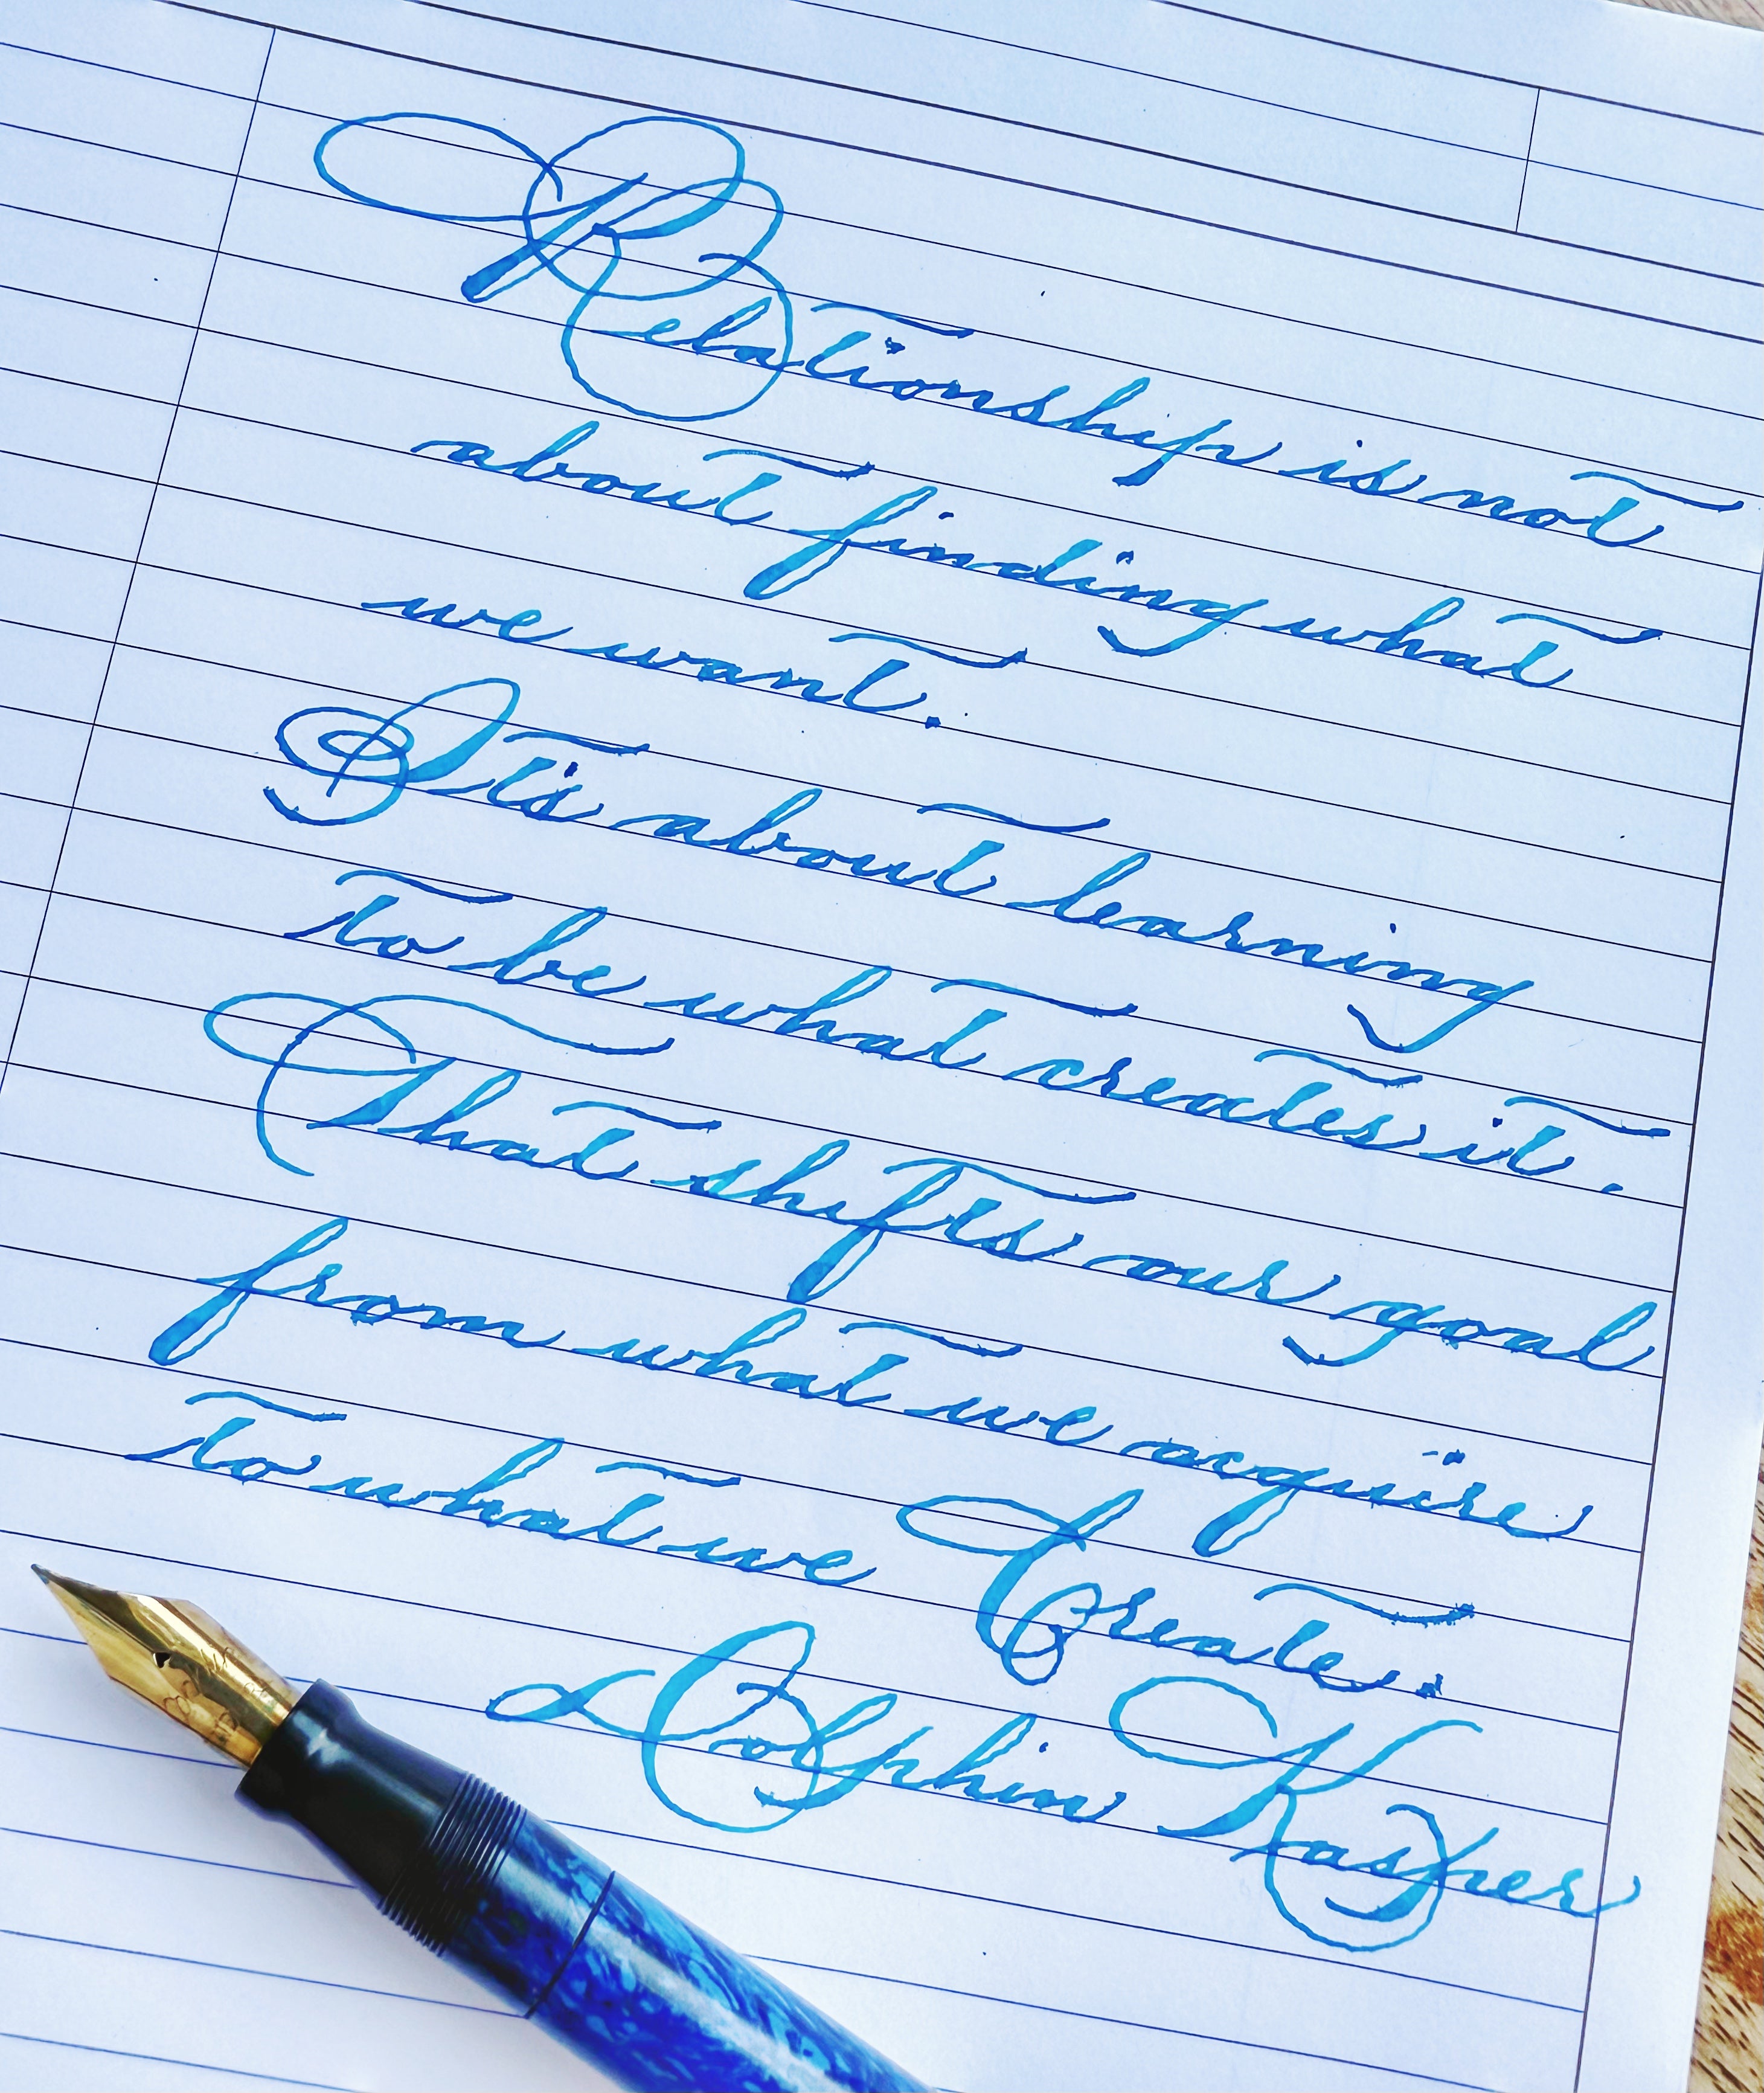 Relationship is not
about finding what
we want.
It's about learning
to be what creates it.
That shifts our goal
from what we acquire
to what we Create.
Dolphin Kasper